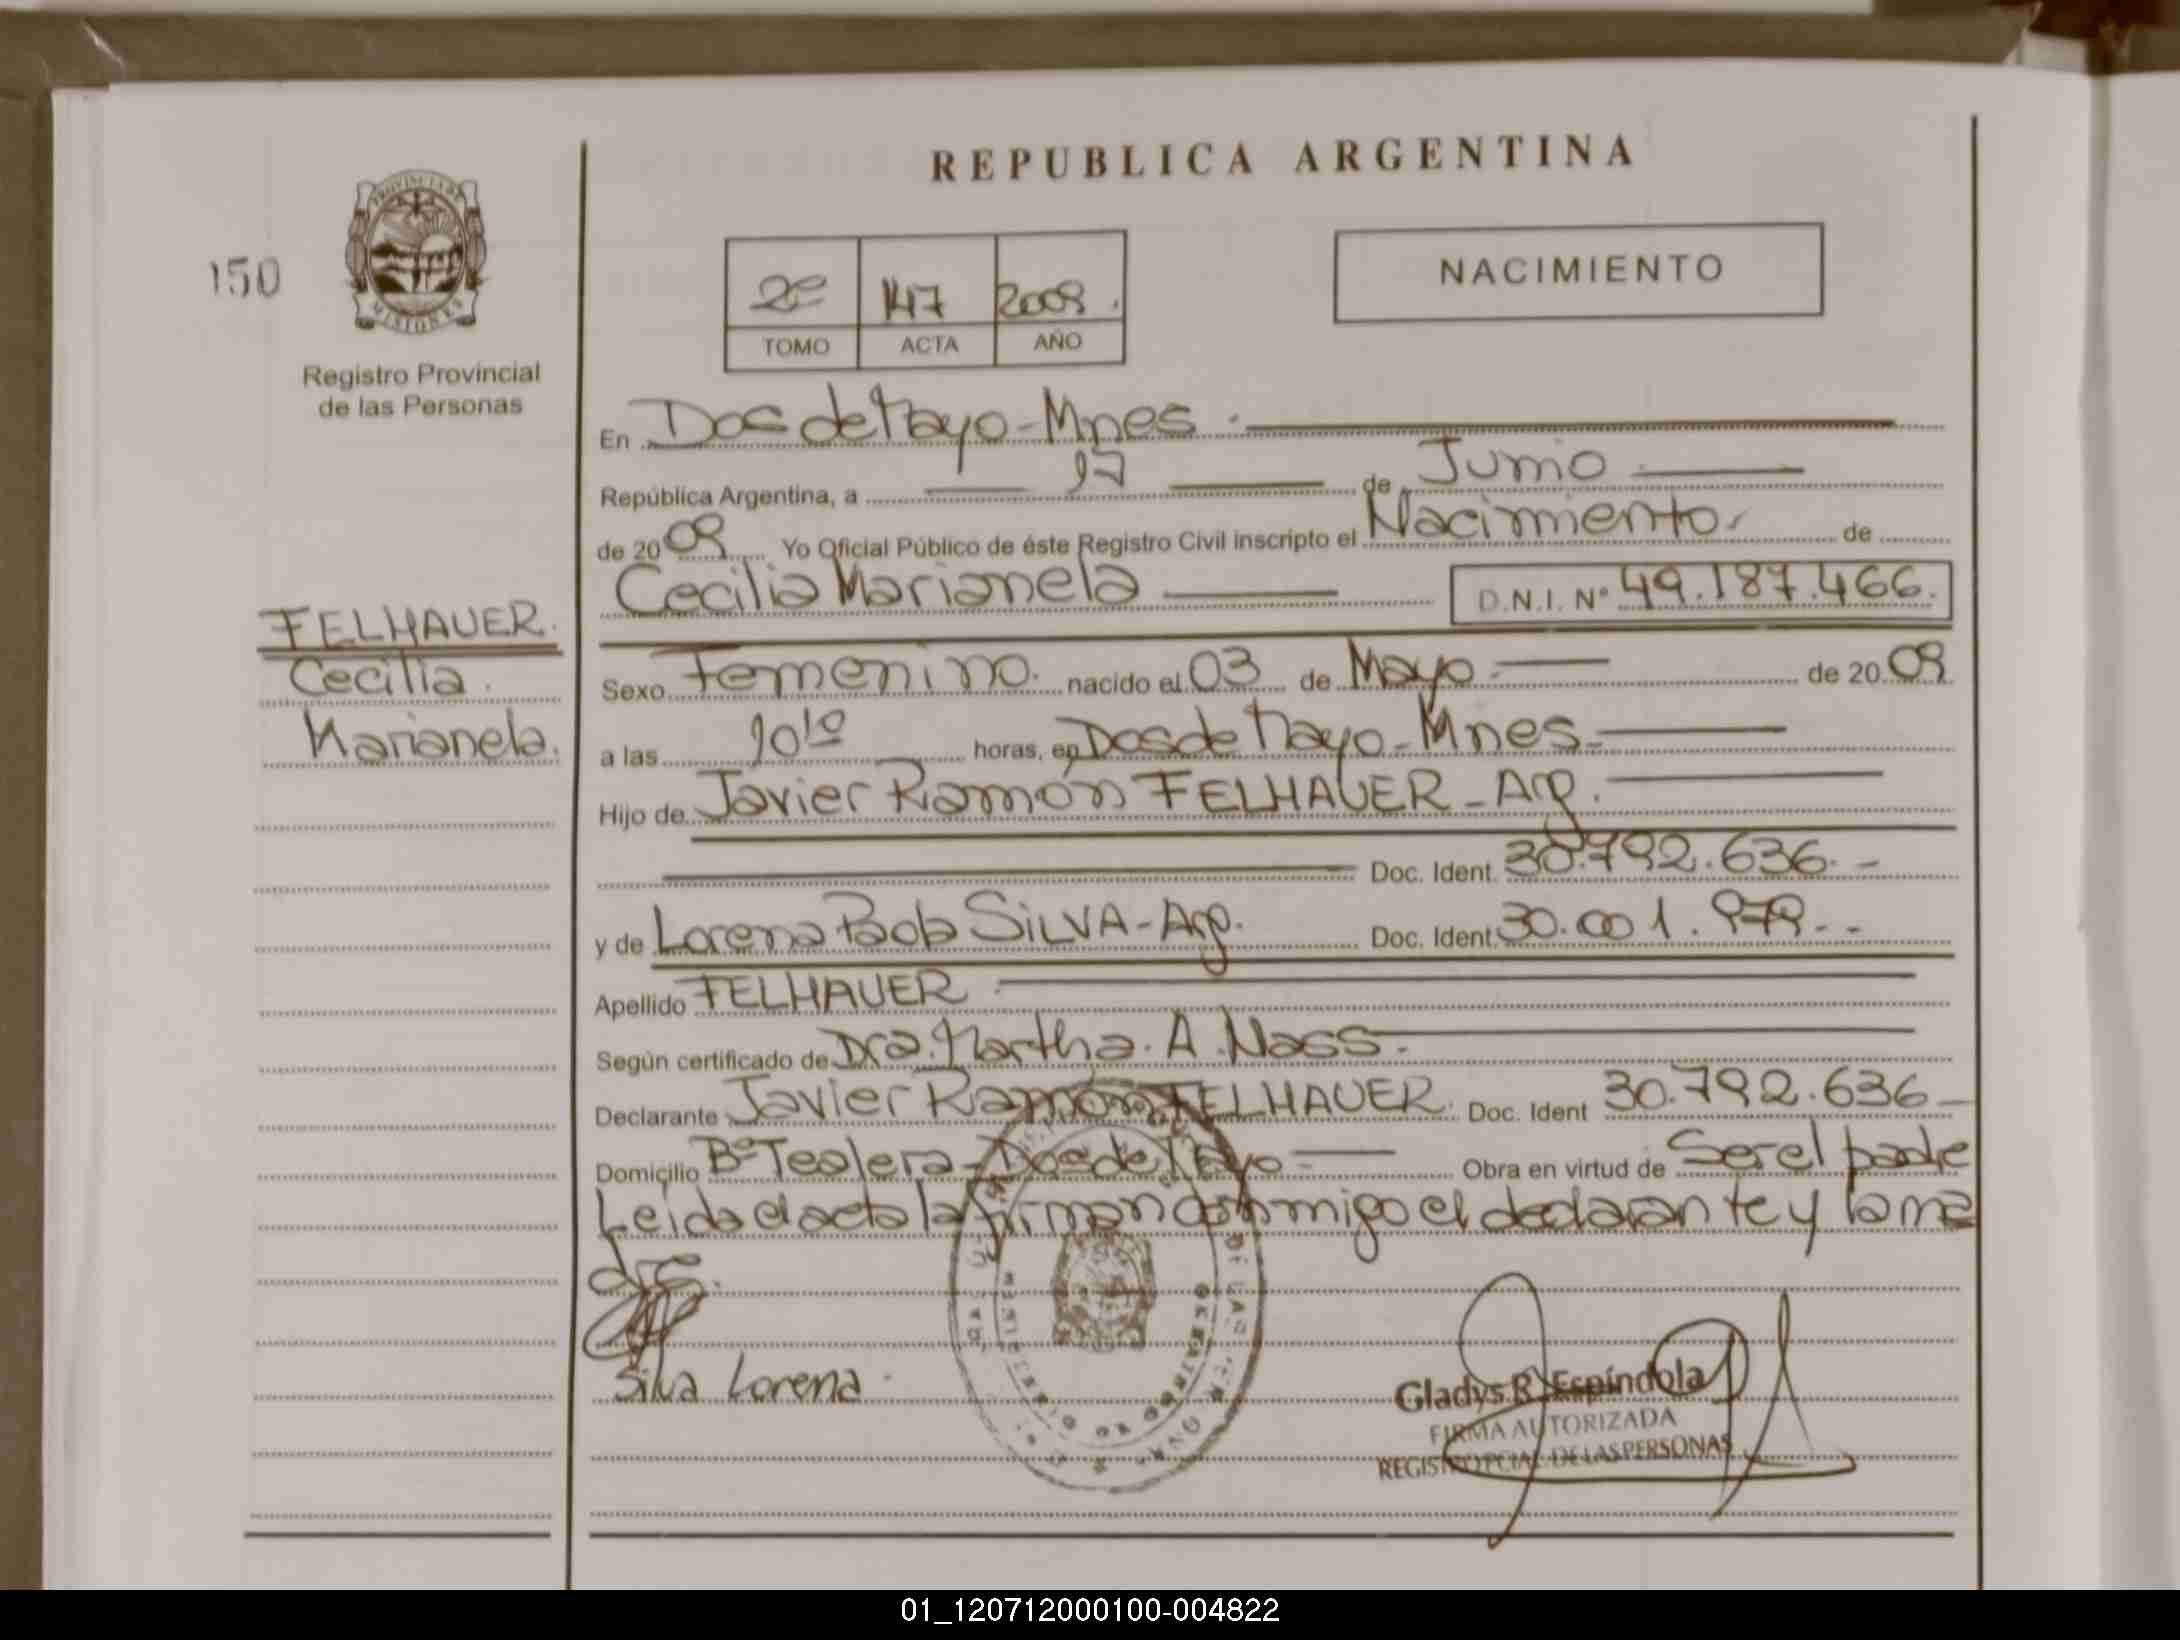 REPUBLICA ARGENTINA
150
PROVINCIA DE
MISIONES
Registro Provincial
de las Personas
2º 147 2009.
TOMO ACTA AÑO
NACIMIENTO
En Dos de Mayo - Mnes.
República Argentina, a 17 de Junio
de 2009 Yo Oficial Público de éste Registro Civil inscripto el Nacimiento. de
Cecilia Marianela D.N.I. Nº 49.187.466.
FELHAUER.
Cecilia.
Marianela.
Sexo Femenino. nacido el 03 de Mayo de 2009
a las 10¹⁰ horas, en Dos de Mayo - Mnes.
Hijo de Javier Ramón FELHAUER - Arg.
Doc. Ident. 30.792.636.-
y de Lorena Paola SILVA - Arg. Doc. Ident. 30.001.979.-
Apellido FELHAUER
Según certificado de Dra. Martha. A. Nass.
Declarante Javier Ramón FELHAUER. Doc. Ident 30.792.636
Domicilio Bº Tealera - Dos de Mayo Obra en virtud de Ser el padre
Leida el acta la firman conmigo el declarante y la ma
dre.
Silva Lorena.
Gladys R. Espíndola
FIRMA AUTORIZADA
REGISTRO PCIAL. DE LAS PERSONAS
01_120712000100-004822